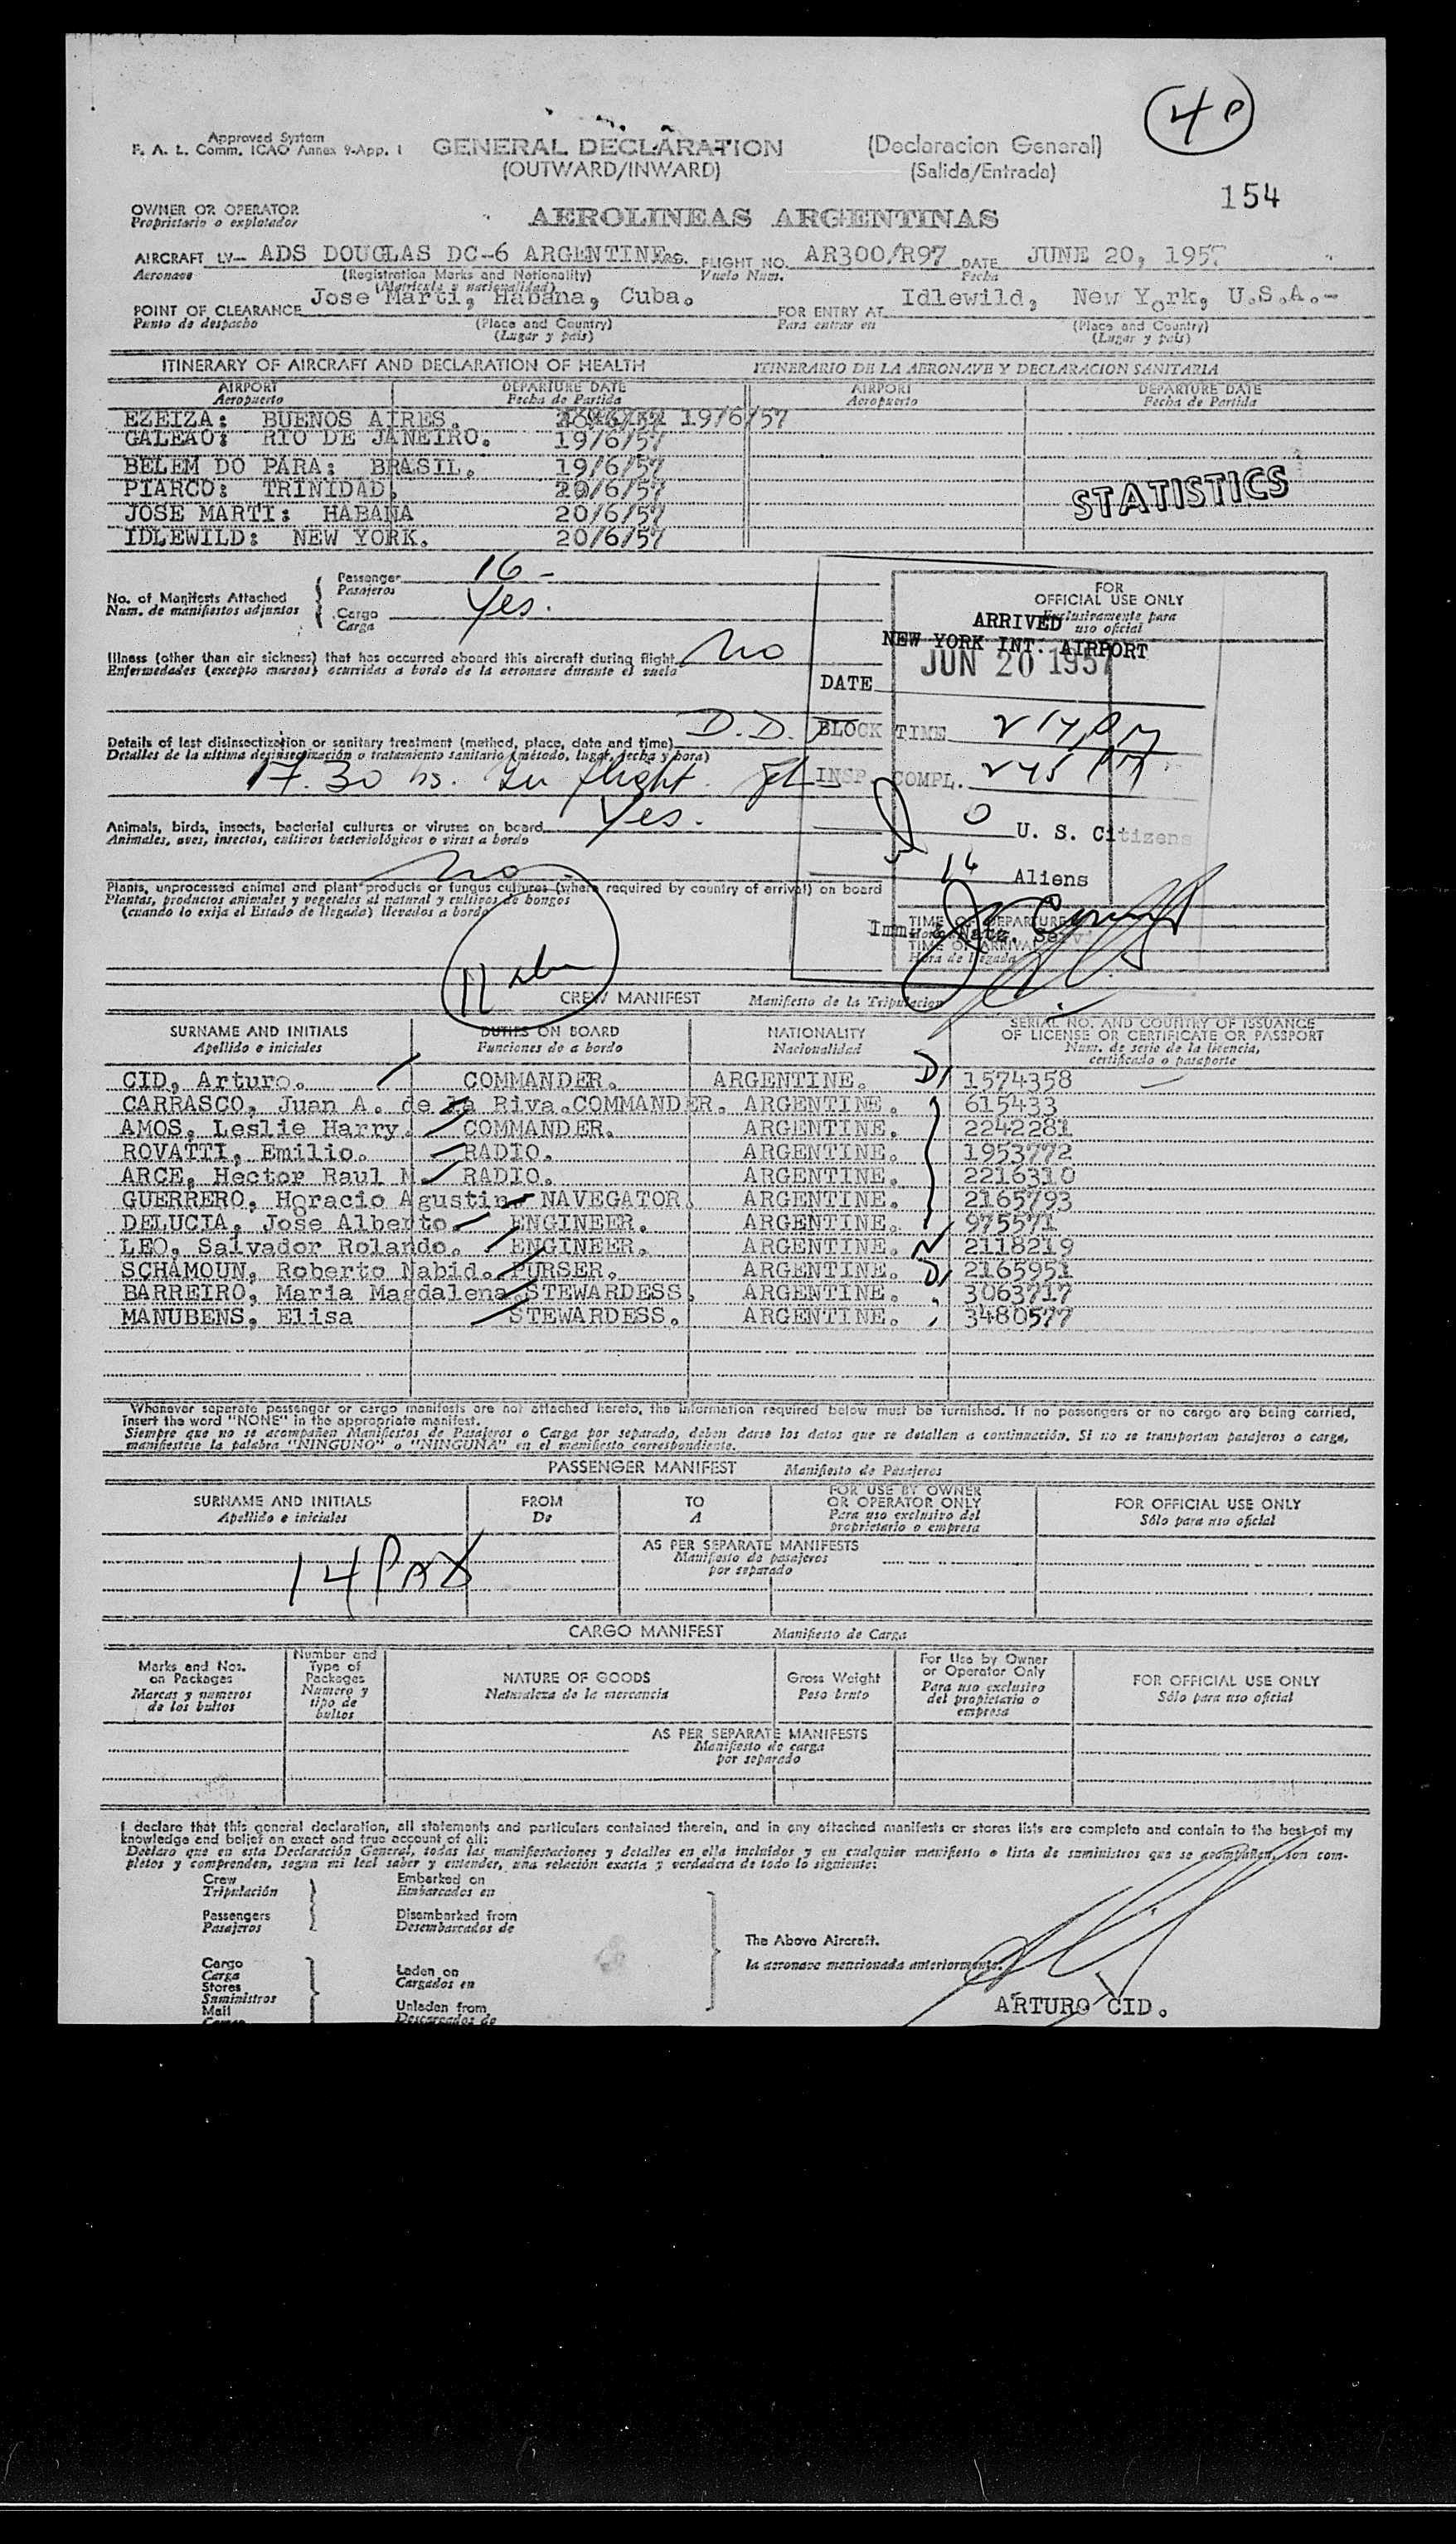 4 P
Approved System
F. A. L. Comm. ICAO Annex 9-App. 1
GENERAL DECLARATION
(Declaracion General)
(OUTWARD/INWARD)
(Salida/Entrada)
154
OWNER OR OPERATOR
Proprietario o explotador
AEROLINEAS ARGENTINAS
AIRCRAFT LV- ADS DOUGLAS DC-6 ARGENTINE FLIGHT NO. AR300/R97 DATE JUNE 20, 1957
Aeronave (Registration Marks and Nationality) Vuelo Num. Fecha
(Matricula y nacionalidad)
POINT OF CLEARANCE Jose Marti, Habana, Cuba. FOR ENTRY AT Idlewild, New York, U.S.A.-
Punto de despacho (Place and Country) Para entrar en (Place and Country)
(Lugar y pais) (Lugar y pais)
ITINERARY OF AIRCRAFT AND DECLARATION OF HEALTH ITINERARIO DE LA AERONAVE Y DECLARACION SANITARIA
AIRPORT DEPARTURE DATE AIRPORT DEPARTURE DATE
Aeropuerto Fecha de Partida Aeropuerto Fecha de Partida
EZEIZA: BUENOS AIRES. 19/6/57
GALEAO: RIO DE JANEIRO. 19/6/57
BELEM DO PARA: BRASIL. 19/6/57
PIARCO: TRINIDAD. 20/6/57
JOSE MARTI: HABANA 20/6/57
IDLEWILD: NEW YORK. 20/6/57
STATISTICS
No. of Manifests Attached
Num. de manifiestos adjuntos
Passenger 16 -
Pasajeros
Cargo Yes.
Carga
FOR
OFFICIAL USE ONLY
Exclusivamente para
uso oficial
ARRIVED
NEW YORK INT. AIRPORT
JUN 20 1957
DATE
Illness (other than air sickness) that has occurred aboard this aircraft during flight No
Enfermedades (excepto mareos) ocurridas a bordo de la aeronave durante el vuelo
BLOCK TIME 217 PM
Details of last disinsectization or sanitary treatment (method, place, date and time) D.D.
Detalles de la ultima desinsectización o tratamiento sanitario (método, lugar, fecha y hora)
17.30 hs. In flight.
INSP. COMPL. 245 PM
0 U. S. Citizens
Animals, birds, insects, bacterial cultures or viruses on board Yes.
Animales, aves, insectos, cultivos bacteriológicos o virus a bordo
14 Aliens
No
Plants, unprocessed animal and plant products or fungus cultures (where required by country of arrival) on board
Plantas, productos animales y vegetales al natural y cultivos de hongos
(cuando lo exija el Estado de llegada) llevados a bordo
TIME OF DEPARTURE
Imm. & Natz. Serv.
TIME OF ARRIVAL
Hora de llegada
CREW MANIFEST Manifiesto de la Tripulacion
SURNAME AND INITIALS DUTIES ON BOARD NATIONALITY SERIAL NO. AND COUNTRY OF ISSUANCE
OF LICENSE OR CERTIFICATE OR PASSPORT
Apellido e iniciales Funciones de a bordo Nacionalidad Num. de serie de la licencia,
certificado o pasaporte
CID, Arturo. COMMANDER. ARGENTINE. 1574358
CARRASCO, Juan A. de la Riva. COMMANDER. ARGENTINE. 615433
AMOS, Leslie Harry. COMMANDER. ARGENTINE. 2242281
ROVATTI, Emilio. RADIO. ARGENTINE. 1953772
ARCE, Hector Raul M. RADIO. ARGENTINE. 2216310
GUERRERO, Horacio Agustin. NAVEGATOR. ARGENTINE. 2165793
DELUCIA, Jose Alberto. ENGINEER. ARGENTINE. 975571
LEO, Salvador Rolando. ENGINEER. ARGENTINE. 2118219
SCHAMOUN, Roberto Nabid. PURSER. ARGENTINE. 2165951
BARREIRO, Maria Magdalena. STEWARDESS. ARGENTINE. 3063717
MANUBENS, Elisa STEWARDESS. ARGENTINE. 3480577
Whenever separate passenger or cargo manifests are not attached hereto, the information required below must be furnished. If no passengers or no cargo are being carried,
insert the word "NONE" in the appropriate manifest.
Siempre que no se acompañen Manifiestos de Pasajeros o Carga por separado, deben darse los datos que se detallan a continuación. Si no se transportan pasajeros o carga,
manifiestese la palabra "NINGUNO" o "NINGUNA" en el manifiesto correspondiente.
PASSENGER MANIFEST Manifiesto de Pasajeros
SURNAME AND INITIALS FROM TO FOR USE BY OWNER
OR OPERATOR ONLY FOR OFFICIAL USE ONLY
Apellido e iniciales De A Para uso exclusivo del
proprietario o empresa Sólo para uso oficial
AS PER SEPARATE MANIFESTS
Manifiesto de pasajeros
por separado
14 PAX
CARGO MANIFEST Manifiesto de Carga
Marks and Nos.
on Packages
Marcas y numeros
de los bultos
Number and
Type of
Packages
Numero y
tipo de
bultos
NATURE OF GOODS
Naturaleza de la mercancia
Gross Weight
Peso bruto
For Use by Owner
or Operator Only
Para uso exclusivo
del propietario o
empresa
FOR OFFICIAL USE ONLY
Sólo para uso oficial
AS PER SEPARATE MANIFESTS
Manifiesto de carga
por separado
I declare that this general declaration, all statements and particulars contained therein, and in any attached manifests or stores lists are complete and contain to the best of my
knowledge and belief an exact and true account of all:
Declaro que en esta Declaración General, todas las manifestaciones y detalles en ella incluidos y en cualquier manifiesto o lista de suministros que se acompañen, son com-
pletos y comprenden, segun mi leal saber y entender, una relación exacta y verdadera de todo lo siguiente:
Crew Embarked on
Tripulación Embarcados en
Passengers Disembarked from
Pasajeros Desembarcados de
The Above Aircraft.
la aeronave mencionada anteriormente.
Cargo
Carga
Stores
Suministros
Mail
Correo
Laden on
Cargados en
Unladen from
Descargados de
ARTURO CID.